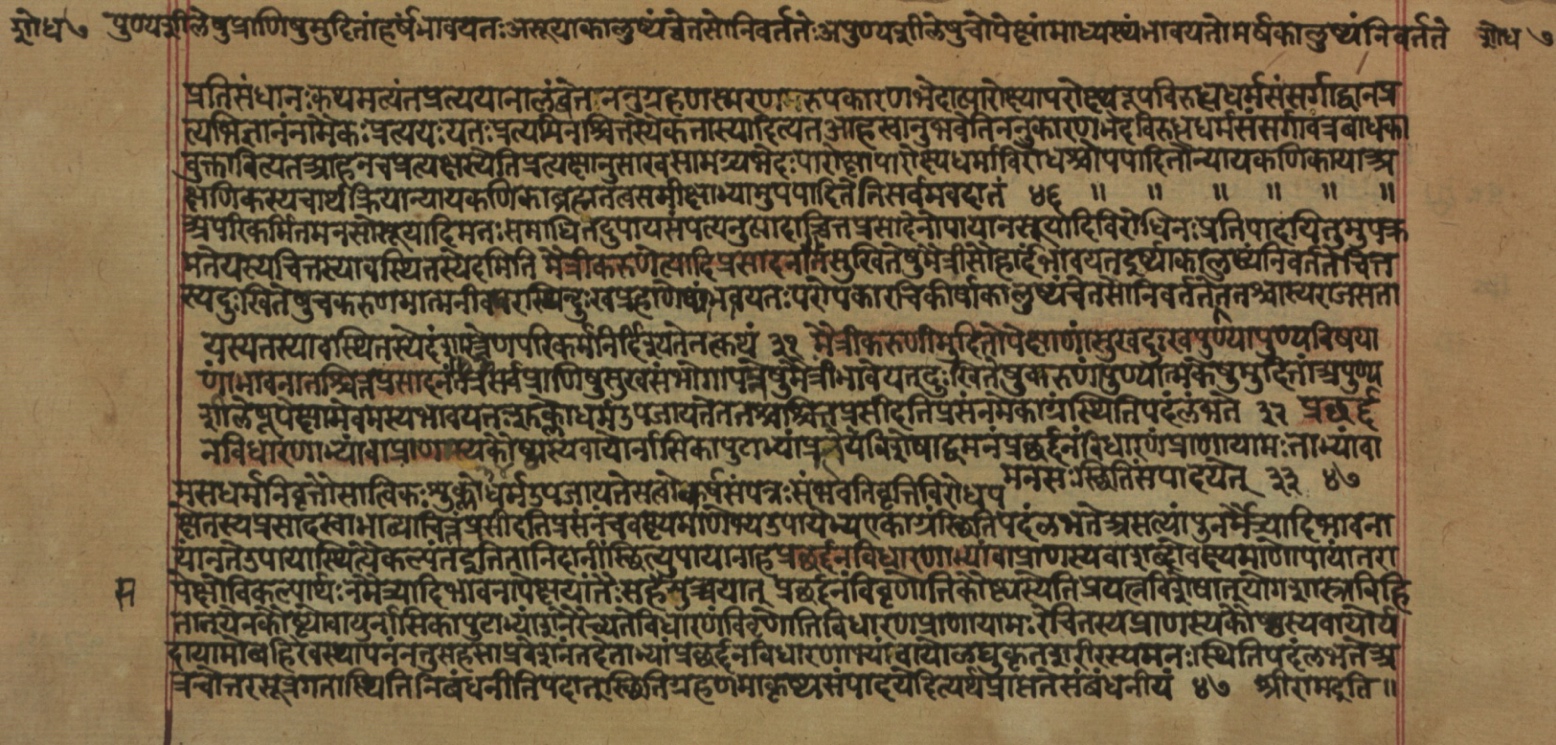 शोध ७ पुण्यशीलेषुप्राणिषुमुदितांहर्षंभावयतः असूयाकालुष्यंचेतसोनिवर्तते अपुण्यशीलेषुचोपेक्षांमाध्यस्थंभावयतोमर्षकालुष्यंनिवर्तते शोध ७
प्रतिसंधानः कथमत्यंतप्रत्ययानालंबेत ननुग्रहणस्मरण रूपकारणभेदात्पारोक्ष्यापरोक्ष्यरूपविरुद्धधर्मसंसर्गाद्वानप्र
त्यभिज्ञानंनामैकः प्रत्ययः यतः प्रत्ययिनश्चित्तस्यैकतास्यादित्यतआहस्वानुभवेतिननुकारणभेदविरुद्धधर्मसंसर्गावत्रबाधका
वुक्तावित्यतआहनचप्रत्यक्षस्येतिप्रत्यक्षानुसारएवसामग्र्यभेदः पारोक्ष्यापारोक्ष्यधर्माविरोधश्चोपपादितौन्यायकणिकायाअ
क्षणिकस्यचार्थक्रियान्यायकणिकाब्रह्मतत्वसमीक्षाभ्यामुपपादितेतिसर्वमवदातं ४६ ॥ ॥ ॥ ॥ ॥ ॥
अपरिकर्मितमनसोसूयादिमतः समाधितदुपायसंपत्यनुत्पादाच्चित्तप्रसादनोपायानसूयादिविरोधिनः प्रतिपादयितुमुपक्र
मतेयस्यचित्तस्यावस्थितस्येदमिति मैत्रीकरुणेत्यादिप्रसादनांतंसुखितेषुमैत्रींसौहार्दंभावयतईर्ष्याकालुष्यंनिवर्ततेचित्त
स्यदुःखितेषुचकरुणामात्मनीवपरस्मिन्दुःखप्रहाणेच्छांभावयतः परोपकारचिकीर्षाकालुष्यंचेतसोनिवर्ततेततश्चास्यराजसता
यस्यतस्यावस्थितस्येदंशास्त्रेणपरिकर्मनिर्दिश्यतेतत्कथं ३१ मैत्रीकरुणामुदितोपेक्षाणांसुखदुःखपुण्यापुण्यविषया
णांभावनातश्चित्तप्रसादनंतत्रसर्वप्राणिषुसुखसंभोगापन्नेषुमैत्रींभावयेत्दुःखितेषुकरुणांपुण्यात्मकेषुमुदितांअपुण्य
शीलेषूपेक्षामेवमस्यभावयतःशुक्लोधर्मउपजायतेततश्चचित्तंप्रसीदतिप्रसंनमेकाग्रंस्थितिपदंलभते ३२ प्रछर्द्द
नविधारणाभ्यांवाप्राणस्यकोष्ठ्यस्यवायोर्नासिकापुटाभ्यांप्रयत्नविशेषाद्वमनंप्रछर्दनंविधारणंप्राणायामःताभ्यांवा
मनसः स्थितिंसंपादयेत् ३३ ४७
मसधर्मनिवृत्तौसात्विकःशुक्लोधर्मउपजायतेसत्वोत्कर्षसंपन्नः संभवतिवृत्तिनिरोधप
क्षेतस्यप्रसादस्वाभाव्याच्चित्तंप्रसीदतिप्रसंनंचवक्ष्यमाणेभ्यउपायेभ्यएकाग्रंस्थितिपदंलभतेअसत्यांपुनर्मैत्र्यादिभावना
यांनतेउपायास्थित्यैकल्पंतइतितानिदानींस्थित्युपायानाहप्रछर्दनविधारणाभ्यांवाप्राणस्यवाशब्दोवक्ष्यमाणोपायांतरा
पेक्षोविकल्पार्थः नमैत्र्यादिभावनापेक्षयातैःसहसमुच्चयात् प्रछर्दनंविवृणोतिकोष्ठ्यस्येतिप्रयत्नविशेषात्योगशास्त्रविहि
तात्येनकोष्ठ्योवायुर्नासिकापुटाभ्यांशनैरेच्यतेविधारणंविवृणोतिविधारणंप्राणायामः रेचितस्यप्राणस्यकोष्ठ्यस्यवायोर्य
दायामोबहिरेवस्थापनंनतुसहसाप्रवेशनंतदेताभ्यांप्रछर्दनविधारणाभ्यांवायोर्लघुकृतशरीरस्यमनः स्थितिपदंलभतेअ
त्रचोत्तरसूत्रगतास्थितिनिबंधनीतिपदात्स्थितिग्रहणमाकृष्यसंपादयेदित्यर्थप्राप्तेनसंबंधनीयं ४७ श्रीरामइति॥